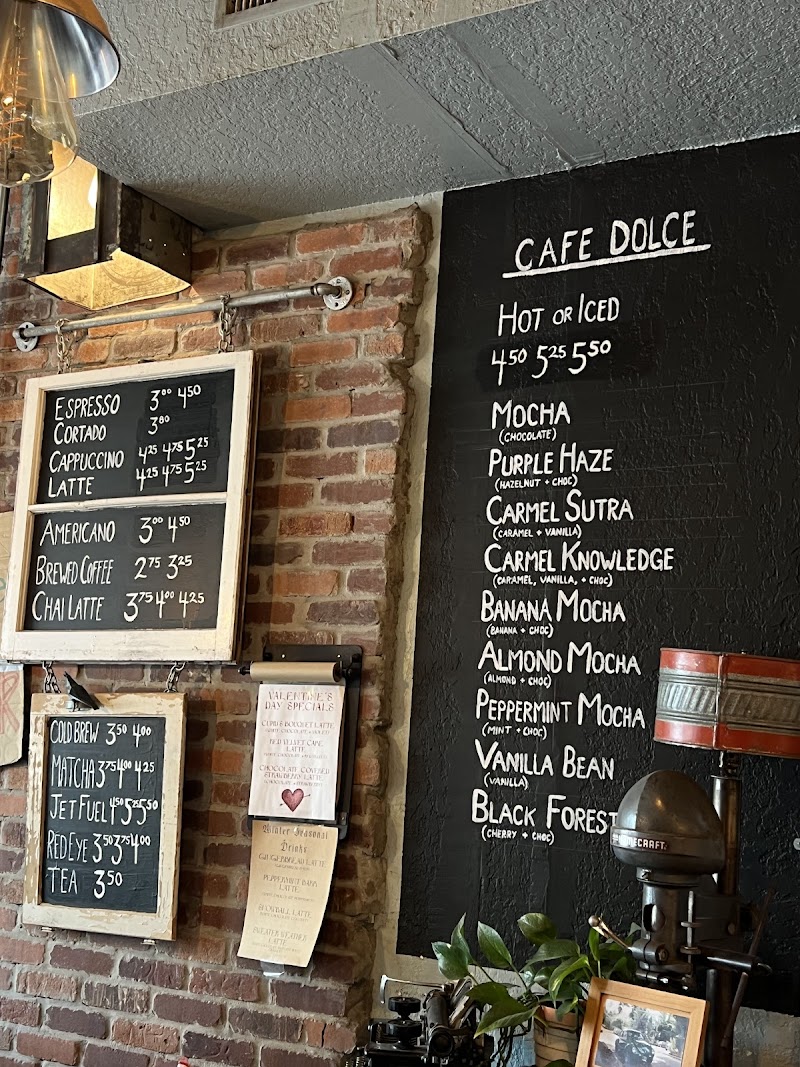 ESPRESSO 3⁰⁰ 4⁵⁰
CORTADO 3⁸⁰
CAPPUCCINO 4²⁵ 4⁷⁵ 5²⁵
LATTE 4²⁵ 4⁷⁵ 5²⁵
AMERICANO 3⁰⁰ 4⁵⁰
BREWED COFFEE 2⁷⁵ 3²⁵
CHAI LATTE 3⁷⁵ 4⁰⁰ 4²⁵
COLD BREW 3⁵⁰ 4⁰⁰
MATCHA 3⁷⁵ 4⁰⁰ 4²⁵
JET FUEL 4⁵⁰ 5²⁵ 5⁵⁰
RED EYE 3⁵⁰ 3⁷⁵ 4⁰⁰
TEA 3⁵⁰
VALENTINE'S
DAY SPECIALS
CUPID'S BOUQUET LATTE
RED VELVET CAKE
LATTE
CHOCOLATE COVERED
STRAWBERRY LATTE
Winter Seasonal
Drinks
GINGERBREAD LATTE
PEPPERMINT BARK
LATTE
SNOWBALL LATTE
SWEATER WEATHER
LATTE
CAFE DOLCE
HOT OR ICED
4⁵⁰ 5²⁵ 5⁵⁰
MOCHA
(CHOCOLATE)
PURPLE HAZE
(HAZELNUT + CHOC)
CARMEL SUTRA
(CARAMEL + VANILLA)
CARMEL KNOWLEDGE
(CARAMEL, VANILLA, + CHOC)
BANANA MOCHA
(BANANA + CHOC)
ALMOND MOCHA
(ALMOND + CHOC)
PEPPERMINT MOCHA
(MINT + CHOC)
VANILLA BEAN
(VANILLA)
BLACK FOREST
(CHERRY + CHOC)